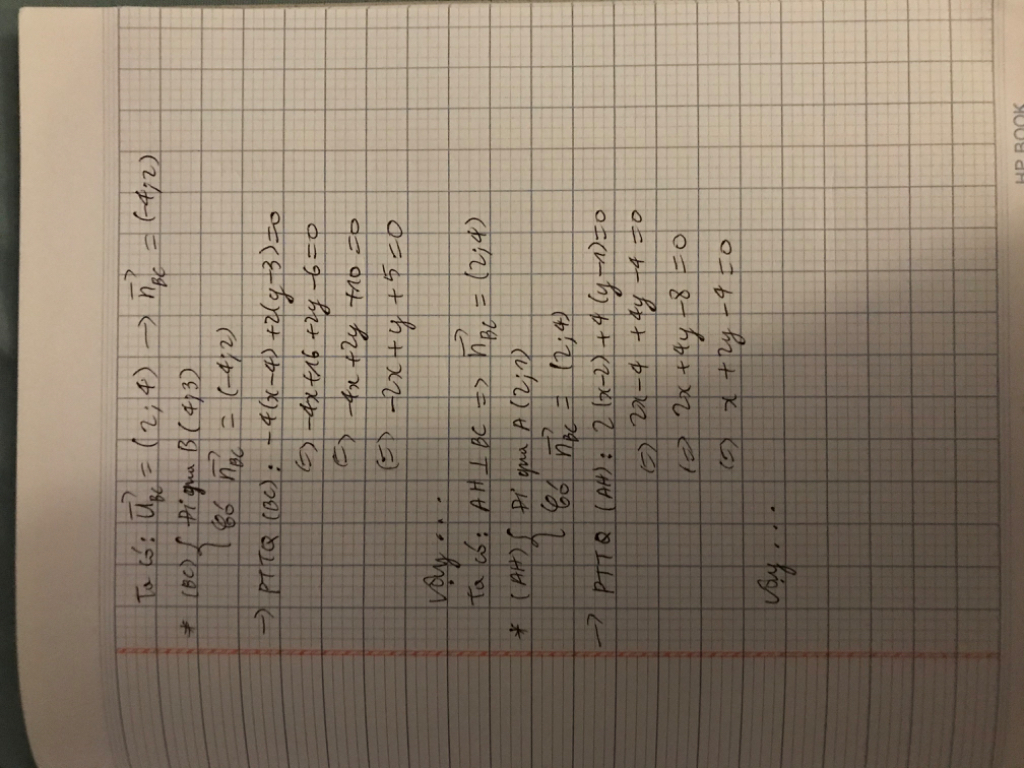 Ta có: u⃗BC = (2;4) → n⃗BC = (-4;2)
* (BC) { Đi qua B(4;3)
Có n⃗BC = (-4;2)
→ PTTQ (BC): -4(x-4)+2(y-3)=0
(=) -4x+16+2y-6=0
(=) -4x+2y+10=0
(=) -2x+y+5=0
Vậy...
Ta có: AH⊥BC => n⃗BC = (2;4)
* (AH) { Đi qua A(2;1)
Có n⃗BC = (2;4)
→ PTTQ (AH): 2(x-2)+4(y-1)=0
(=) 2x-4+4y-4=0
(=) 2x+4y-8=0
(=) x+2y-4=0
Vậy...
HP BOOK